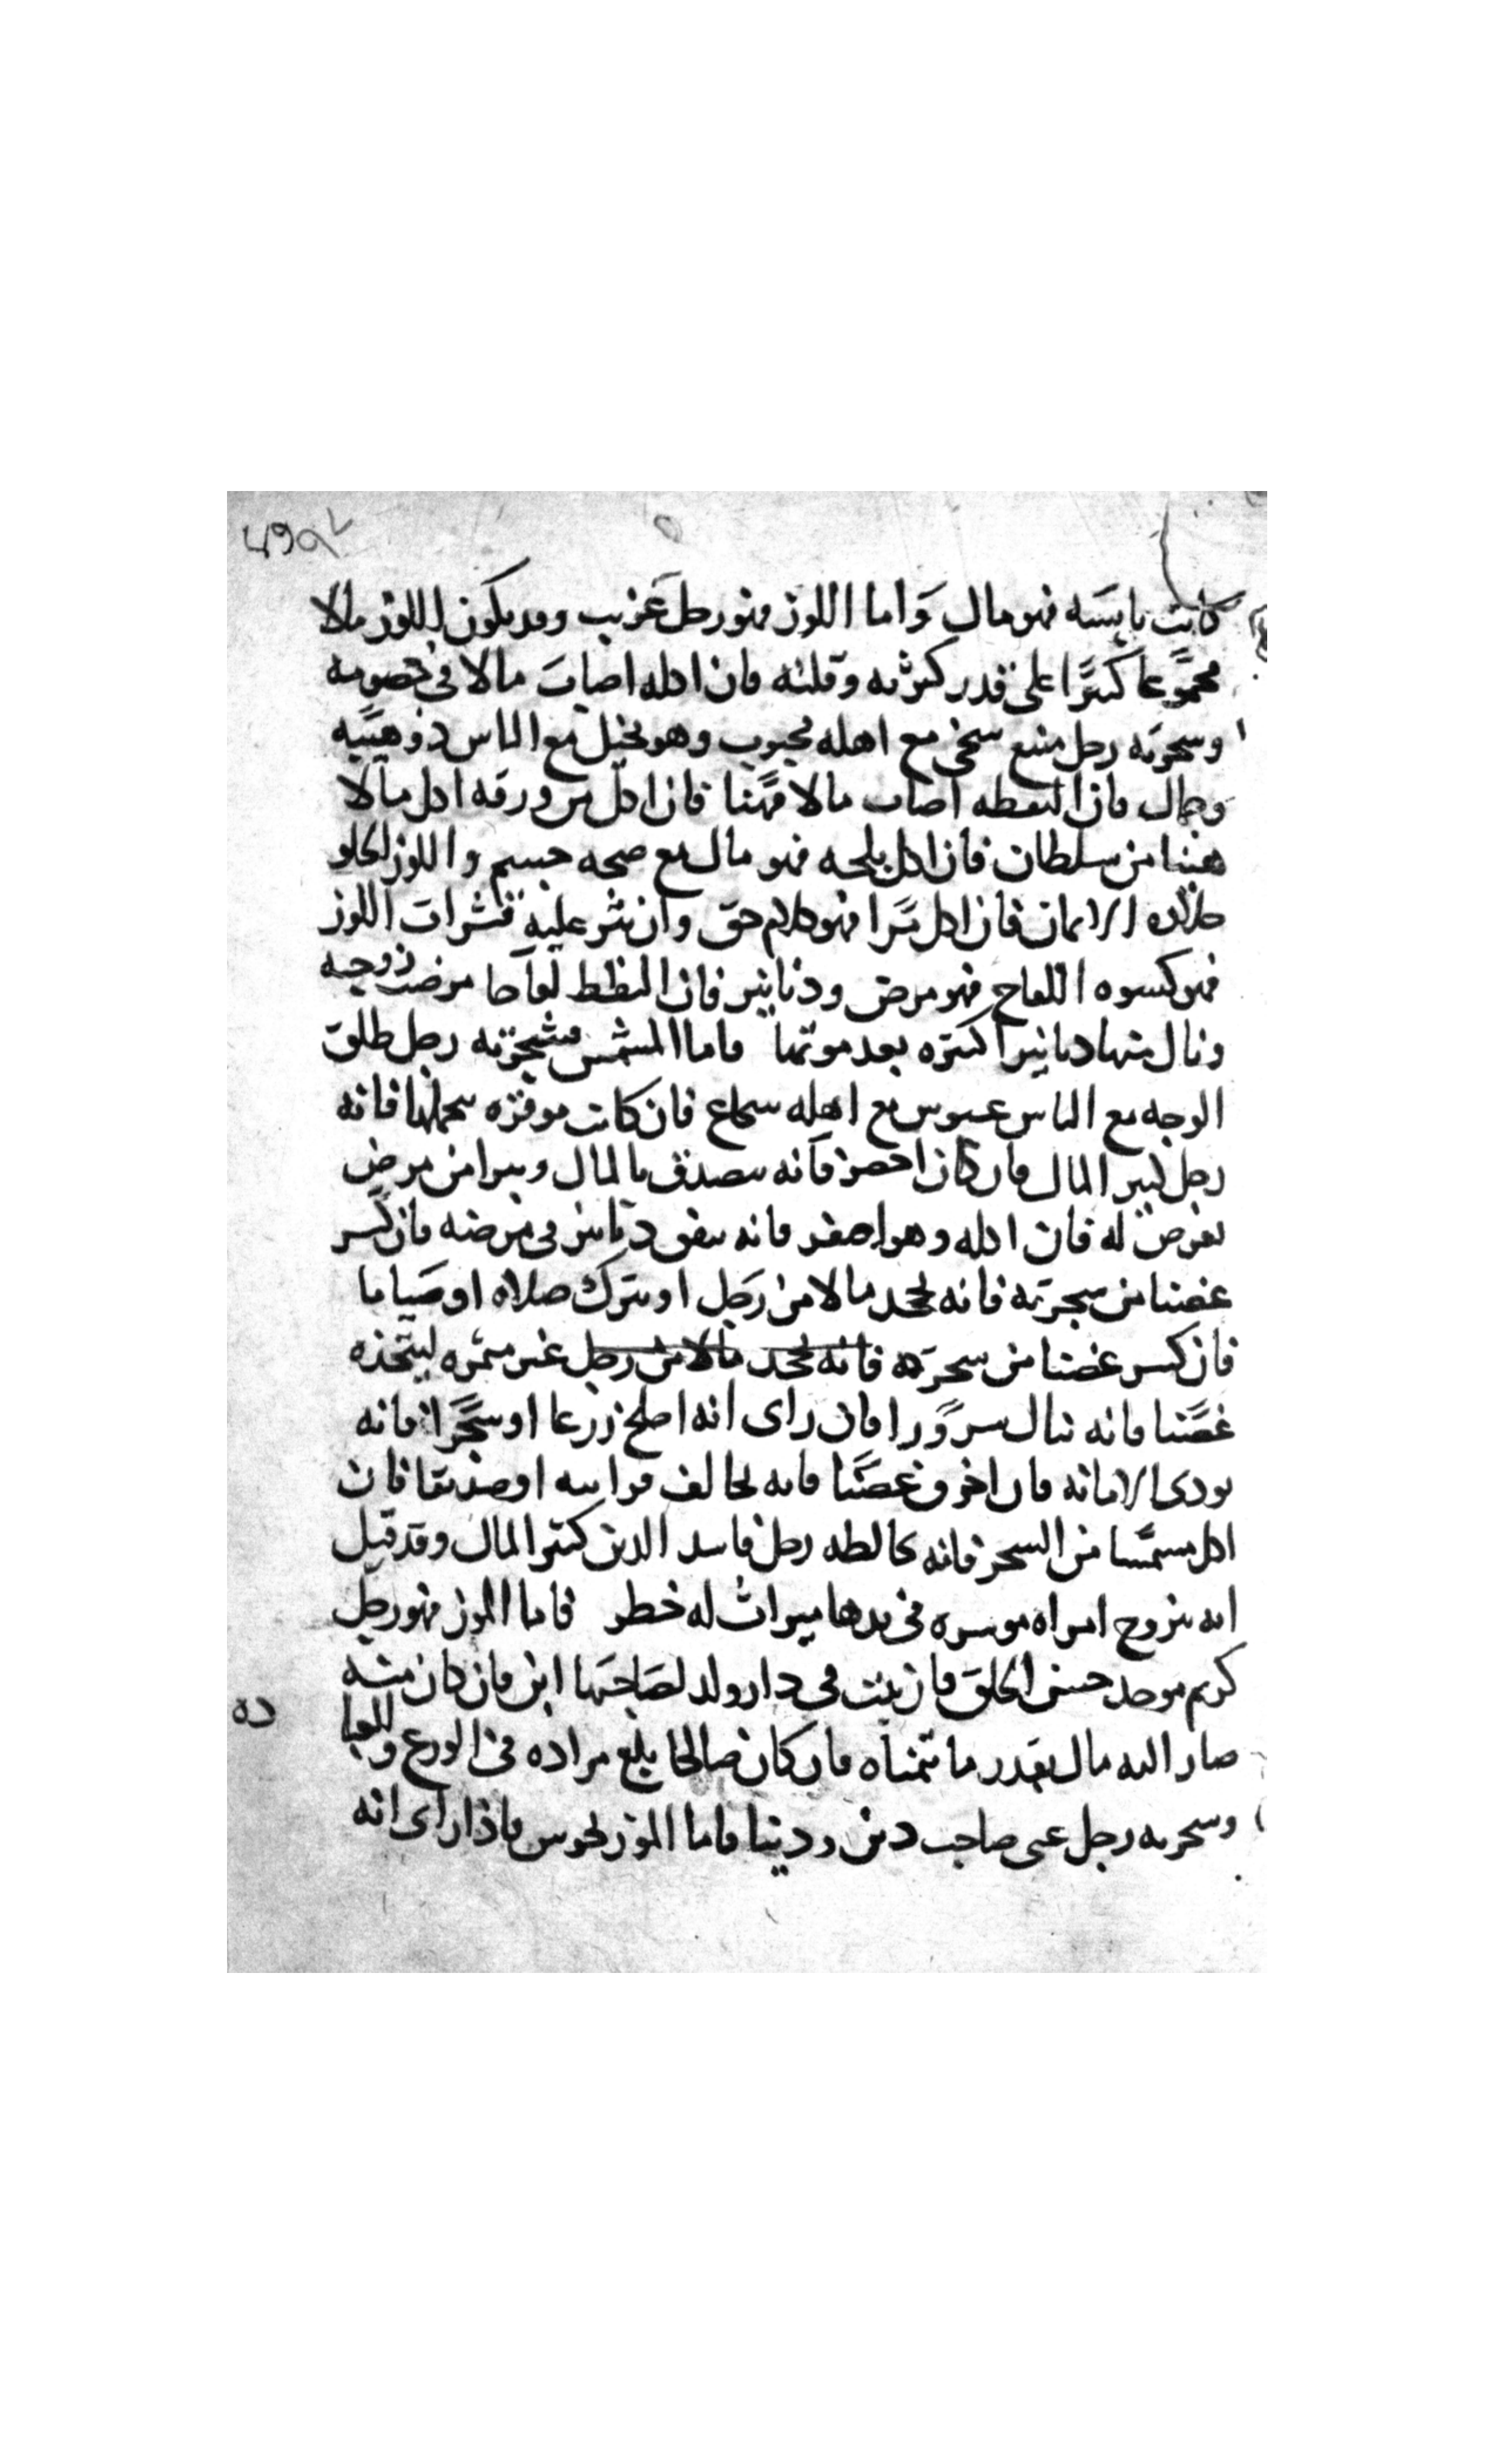 كانت يابسه فهو مال وَاما اللوز فهو رجل غَريب وقد يكون اللوز مالا
مجموعا كثيرًا على قدر كثرته وقلته فان اكله اصاب مالا في خصومه
وشجرته رجل منيع سخي مع اهله محبوب وهو بخيل مع الناس ذو هيبَه
وجمال فان التقطه اصاب مالا مهّنا فان اكل من ورقه اكل مالا
هنيا من سلطان فان اكل بلحه فهو مال مع صحه جسم واللوز الحلو
حلاوه الايمان فان اكل مرًا فهو كلام حق وان نثر عليه قشرات اللوز
فهو كسوه اللفاح فهو مرض ودنانير فان التقط لفاحا مرضت زوجته
ونال منها دنانيرا كثيره بعد موتها فاما المشمش فشجرته رجل طلق
الوجه مع الناس عبوس مع اهله شجاع فان كانت موقره بحملها فانه
رجل كثير المال فان كان اخضر فانه يصدق بالمال ويبرا من مرض
يعرض له فان اكله وهو اصفر فانه ينفق دنانير في مرضه فان كسر
غصنا من شجرته فانه يجحد مالا من رَجل او يترك صلاه او صَياما
فان كسر غصنا من شجرَه فانه يجحد مالا من رجل غير مثمره ليتخذه
غصّنا فانه ينال سروًرا فان راى انه اصلح زرعا او شجَرًا فانه
يودى الامانه فان اخرق غصنًا فانه يخالف قرابته او صديقا فان
اكل مشمشا من الشجر فانه يخالطه رجل فاسد الدين كثير المال وقد قيل
انه يتزوج امراه موسره في يدها ميراث له خطر فاما الموز فهو رجل
كريم موحد حسن الخلق فان نبتت في دار ولد لصَاحبَها ابن فان كان منيته
صار اليه مال بقدر ما يتمناه فان كان صالحا بلغ مراده في الورع والعبا
ده
وشجرته رجل غني صاحب دين ودنيا فاما الموز فاذا راى انه